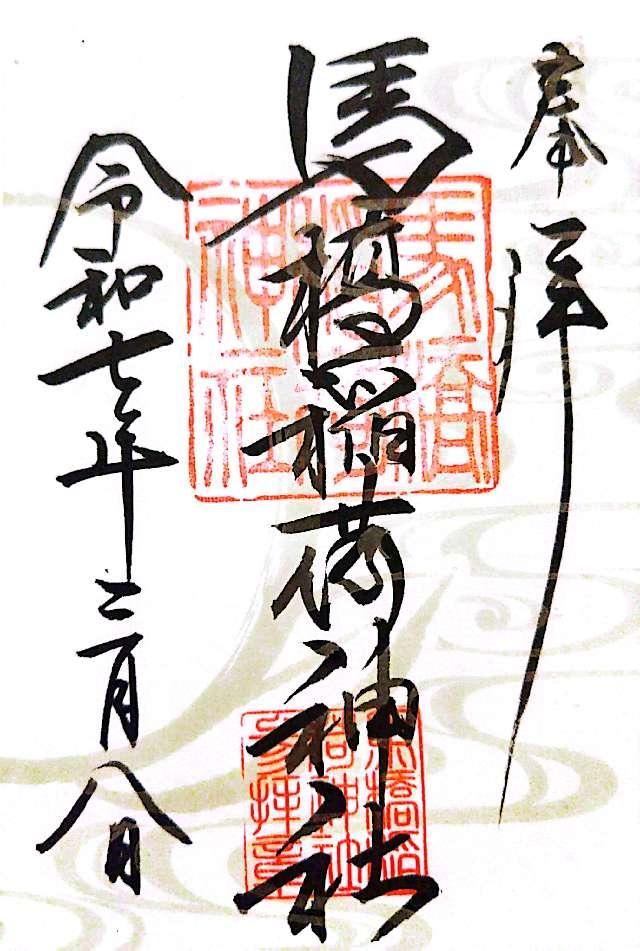 奉拝
馬橋稲荷神社
令和七年三月八日
馬橋
稲荷
神社
馬橋稲
荷神社
参拝